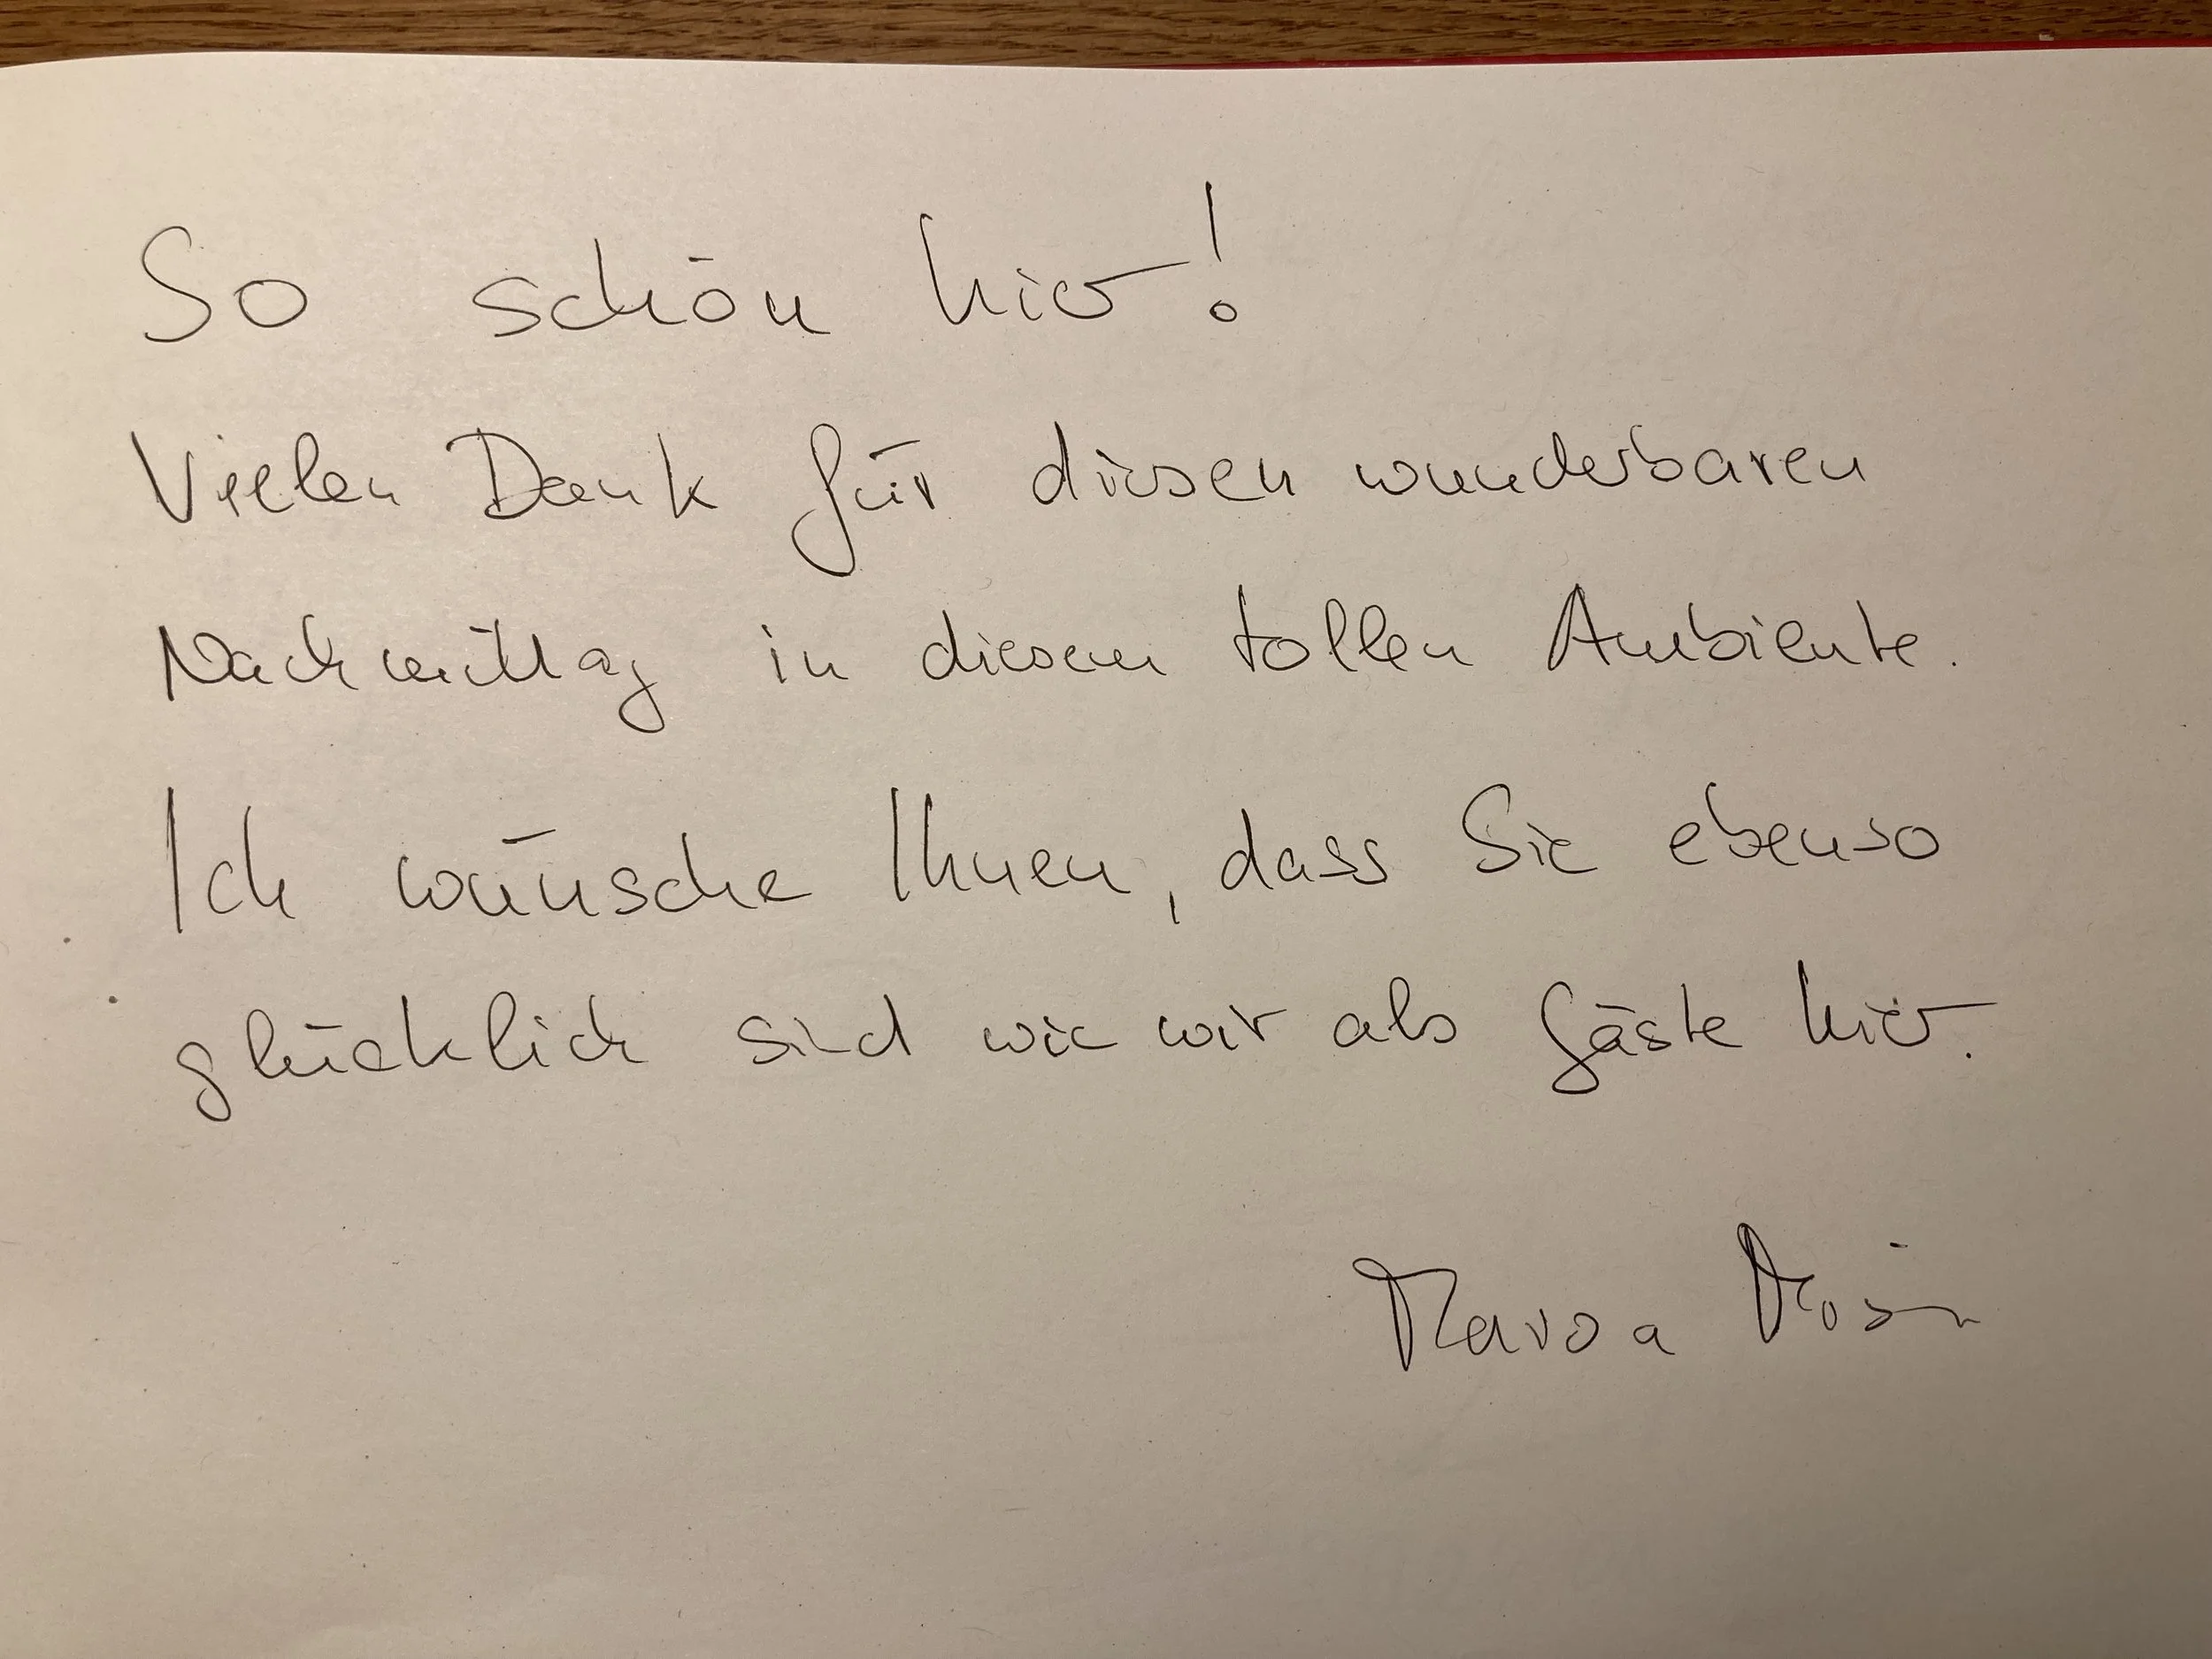 So schön hier!
Vielen Dank für diesen wunderbaren
Nachmittag in diesem tollen Ambiente.
Ich wünsche Ihnen, dass Sie ebenso
glücklich sind wie wir als Gäste hier.